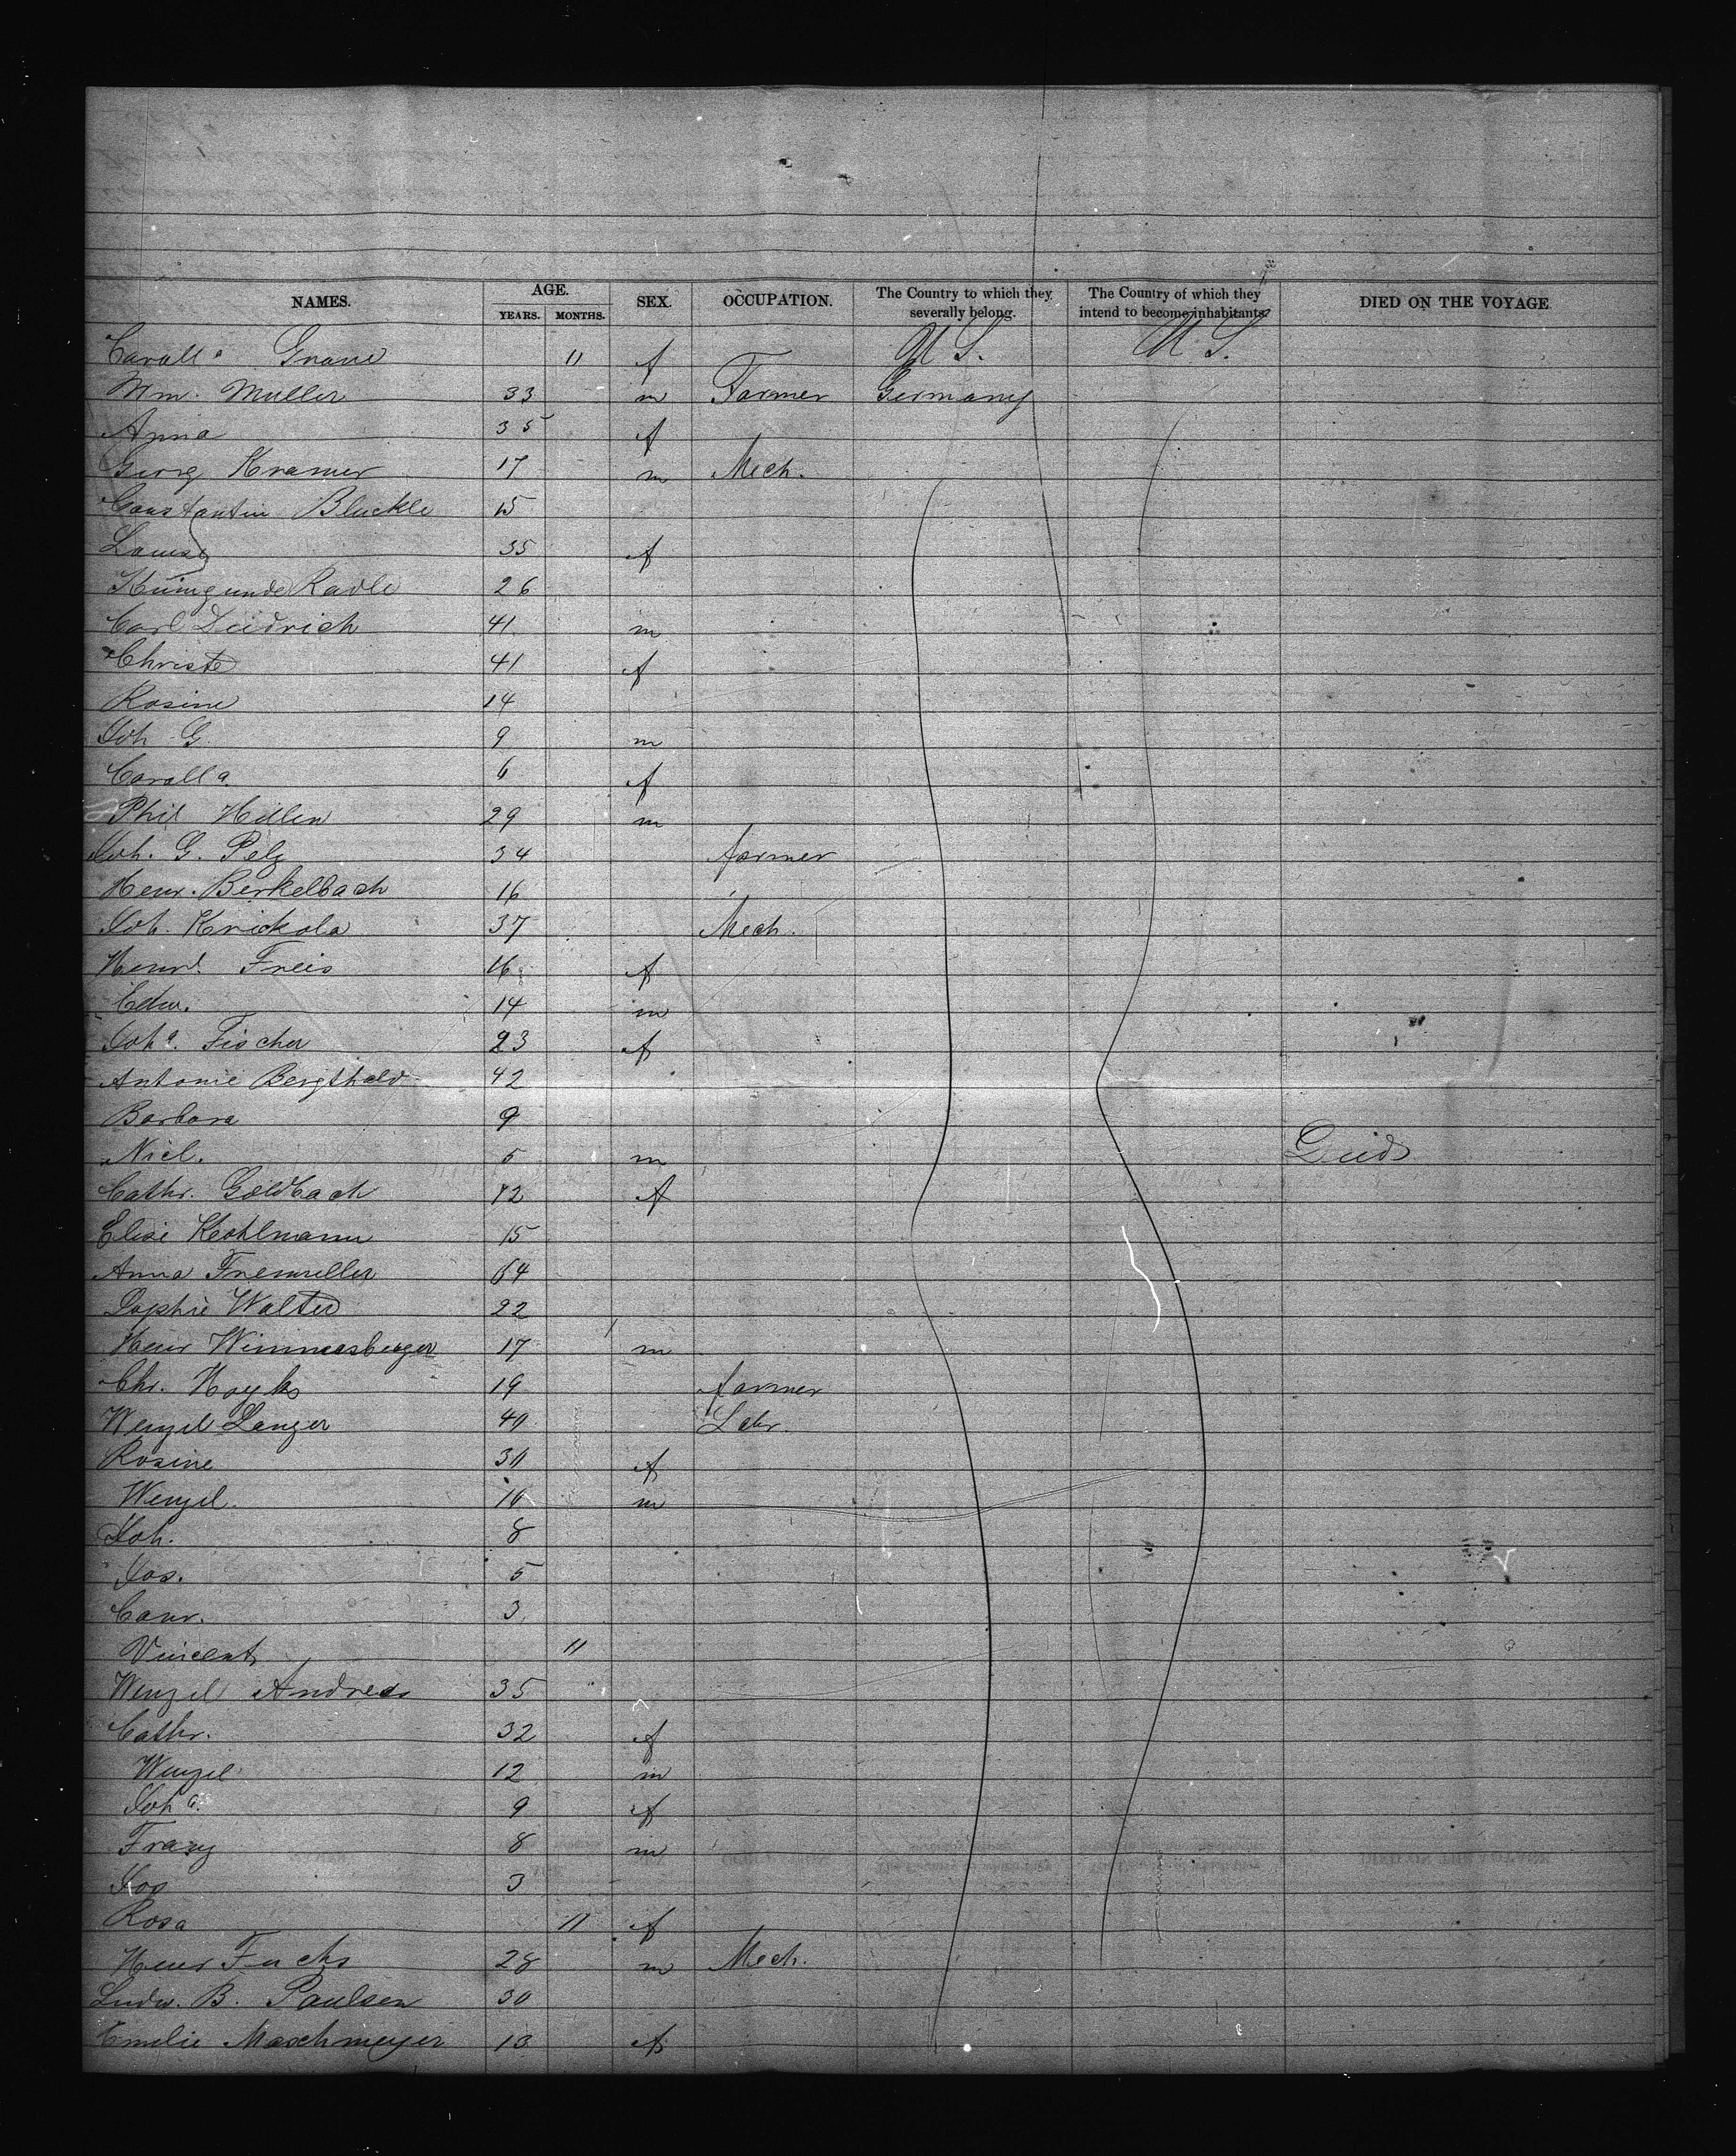 NAMES. AGE. SEX. OCCUPATION. The Country to which they severally belong. The Country of which they intend to become inhabitants. DIED ON THE VOYAGE.
YEARS. MONTHS.
11 f U S. U S.
Wm. Muller 33 m Farmer Germany
Anna 35 f
Georg Kramer 17 m Mech.
Constantin Bluckle 15
Louise 35 f
Kunigunde Radle 26
Carl Deidrich 41 m
Christe 41 f
Rosine 14
Joh G. 9 m
6 f
Phil 29 m
Joh. G. Pelz 34 farmer
Henr. Berkelbach 16
Joh. Krickola 37 Mech.
Freis 16 f
Edw. 14 m
Joha. Fischer 23 f
Antonie 42
Barbara 9
Nicl. 5 m Died
Cathr. Goldbach 12 f
Elise Kohlmann 15
Anna 64
Sophie Walter 22
Henr 17 m
Chr. 19 farmer
Wenzel Langer 40 Labr.
Rosine 30 f
Wenzel. 10 m
Joh. 8
Jos. 5
Conr. 3
Vincent 11
Wenzel Andreas 35
Cathr. 32 f
Wenzel 12 m
Joha. 9 f
Franz 8 m
Jos 3
Rosa 11 f
Henr Fuchs 28 m Mech.
Ludw. B. Paulsen 30
Emelie Maschmeyer 13 f